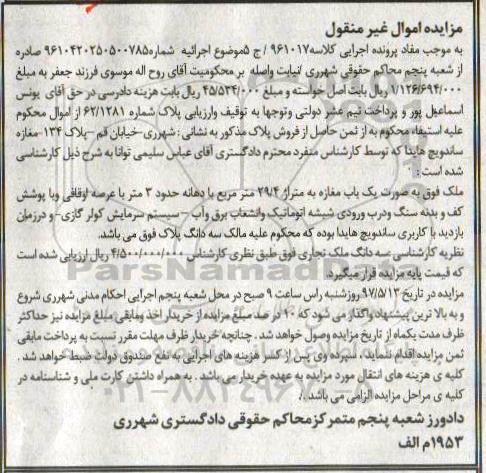 مزایده اموال غیر منقول
به موجب مفاد پرونده اجرایی کلاسه ۹۶۱۰۱۷ / ج ۵ موضوع اجرائیه شماره ۹۶۱۰۴۲۰۲۵۰۵۰۰۷۸۵ صادره
از شعبه پنجم محاکم حقوقی شهرری (نیابت واصله بر محکومیت آقای روح اله موسوی فرزند جعفر به مبلغ
۱/۱۲۶/۶۹۴/۰۰۰ ریال بابت اصل خواسته و مبلغ ۴۵/۵۳۴/۰۰۰ ریال بابت هزینه دادرسی در حق آقای یونس
اسماعیل پور و پرداخت نیم عشر دولتی وتوجها به توقیف وارزیابی پلاک شماره ۶۲/۱۲۸۱ از اموال محکوم
علیه استیفاء محکوم به از ثمن حاصل از فروش پلاک مذکور به نشانی : شهرری-خیابان قم -پلاک ۱۳۴-مغازه
ساندویچ هایدا که توسط کارشناس منفرد محترم دادگستری آقای عباس سلیمی توانا به شرح ذیل کارشناسی
شده است :
ملک فوق به صورت یک باب مغازه به متراژ ۲۹/۴ متر مربع با دهانه حدود ۳ متر با عرصه اوقافی وبا پوشش
کف و بدنه سنگ ودرب ورودی شیشه اتوماتیک وانشعاب برق وآب - سیستم سرمایش کولر گازی- و درزمان
بازدید با کاربری ساندویچ هایدا بوده که محکوم علیه مالک سه دانگ پلاک فوق می باشد.
نظریه کارشناسی سه دانگ ملک تجاری فوق طبق نظری کارشناس ۴/۵۰۰/۰۰۰/۰۰۰ ریال ارزیابی شده است
که قیمت پایه مزایده قرار میگیرد.
مزایده در تاریخ ۹۷/۵/۱۳ روزشنبه راس ساعت ۹ صبح در محل شعبه پنجم اجرایی احکام مدنی شهرری شروع
و به بالا ترین پیشنهاد واگذار می شود که ۱۰ در صد مبلغ مزایده از خریدار اخذ ومابقی مبلغ مزایده نیز حداکثر
ظرف مدت یکماه از تاریخ مزایده وصول خواهد شد . چنانچه خریدار ظرف مهلت مقرر نسبت به پرداخت مابقی
ثمن مزایده اقدام ننماید ، سپرده وی پس از کسر هزینه های اجرایی به نفع صندوق دولت ضبط خواهد شد .
کلیه ی هزینه های انتقال مورد مزایده به عهده خریدار می باشد . به همراه داشتن کارت ملی و شناسنامه در
کلیه ی مراحل مزایده الزامی می باشد ./
دادورز شعبه پنجم متمرکز محاکم حقوقی دادگستری شهرری
۱۹۵۳م الف
ParsNamad
۰۲۱-۸۸۳۴۹۶۷۰